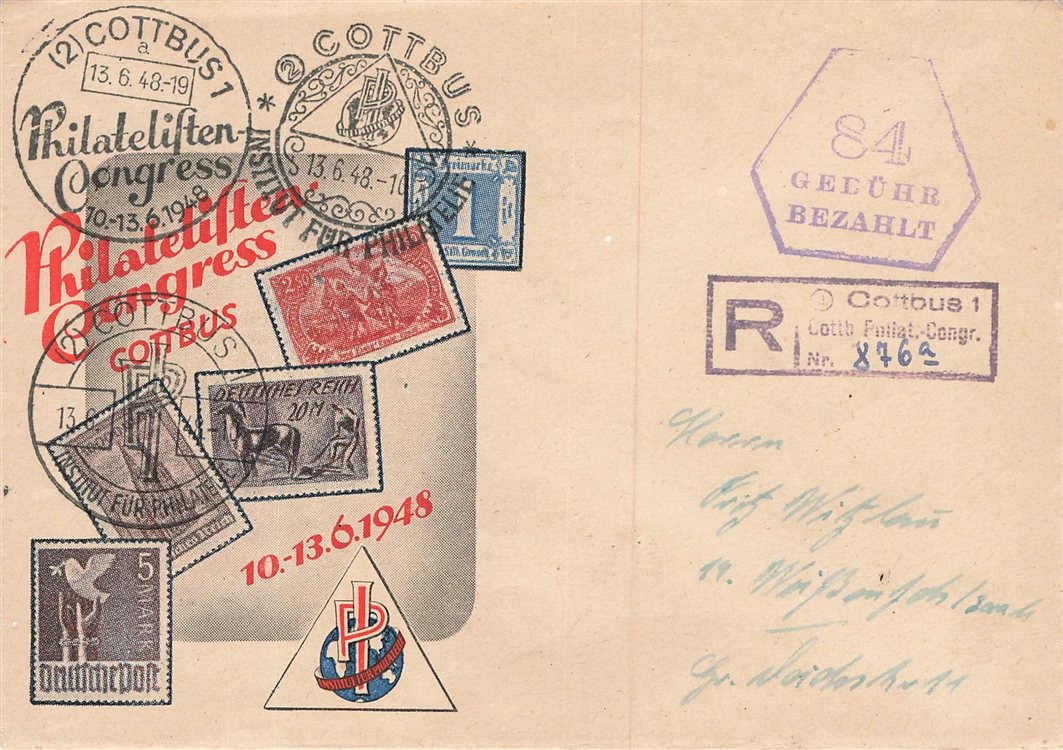 (2) COTTBUS 1
a
13.6.48.-19
Philatelisten-
Congress
10.-13.6.1948
② COTTBUS
* INSTITUT FÜR PHILATELIE *
13.6.48.-10
Freimarke
1
Philatelisten
Congress
COTTBUS
2.50
(2) COTTBUS 1
13.6
48.-1
INSTITUT FÜR PHILATELIE
DEUTSCHES REICH
20 M
10.-13.6.1948
5
MARK
Deutsche Post
PI
INSTITUT FÜR PHILATELIE
84
GEBÜHR
BEZAHLT
R
② Cottbus 1
Cottb Philat.-Congr.
Nr. 876a
Herrn
Fritz Witzlau
19. Weißenfels/Saale